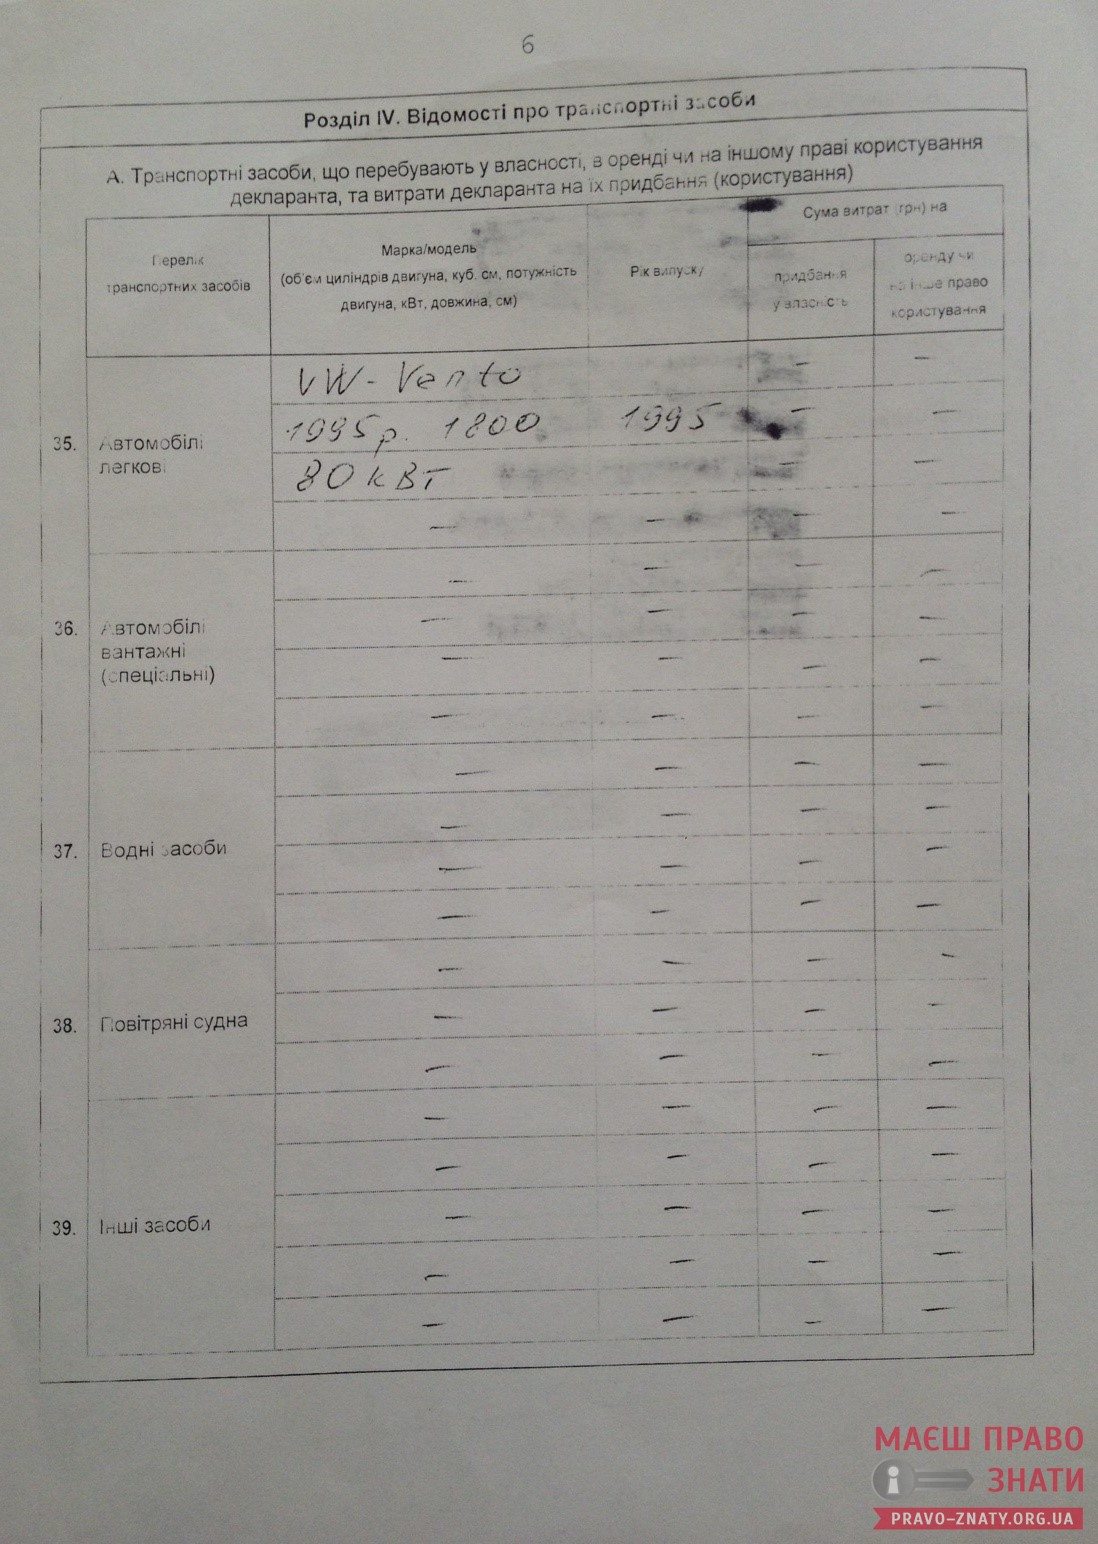 6
Розділ IV. Відомості про транспортні засоби
А. Транспортні засоби, що перебувають у власності, в оренді чи на іншому праві користування
декларанта, та витрати декларанта на їх придбання (користування)
Перелік
транспортних засобів
Марка/модель
(об'єм циліндрів двигуна, куб. см, потужність
двигуна, кВт, довжина, см)
Рік випуску
Сума витрат (грн) на
придбання
у власність
оренду чи
на інше право
користування
VW - Vento
— —
35. Автомобілі
легкові
1995 р. 1800 1995 — —
80 кВт — —
— — — —
36. Автомобілі
вантажні
(спеціальні)
— — — —
— — — —
— — — —
— — — —
37. Водні засоби
— — — —
— — — —
— — — —
— — — —
38. Повітряні судна
— — — —
— — — —
— — — —
39. Інші засоби
— — — —
— — — —
— — — —
— — — —
— — — —
МАЄШ ПРАВО
ЗНАТИ
PRAVO-ZNATY.ORG.UA